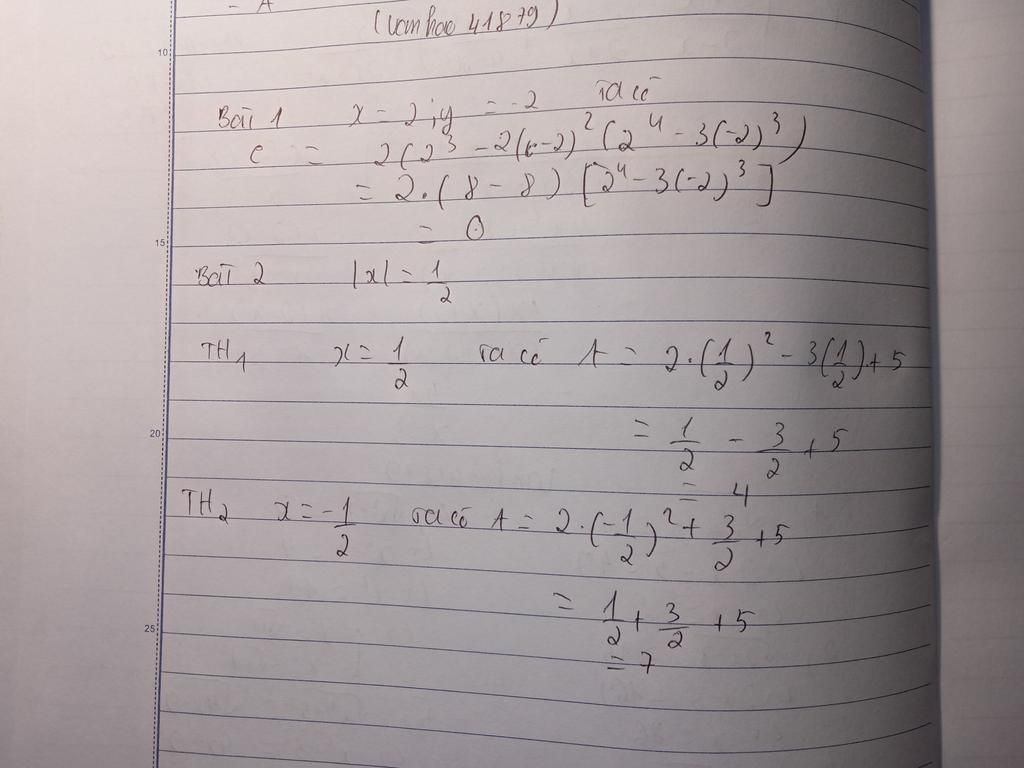 = A
(vanhoo 41879)
10
Bài 1 x = 2 ; y = -2 ta có
C = 2(2³ - 2(-2)² (2⁴ - 3(-2)³)
= 2.(8 - 8) [2⁴ - 3(-2)³]
= 0
15
Bài 2 |x| = 1/2
TH1 x = 1/2 ta có A = 2.(1/2)² - 3(1/2) + 5
20
= 1/2 - 3/2 + 5
= 4
TH2 x = -1/2 ta có A = 2.(-1/2)² + 3/2 + 5
25
= 1/2 + 3/2 + 5
= 7